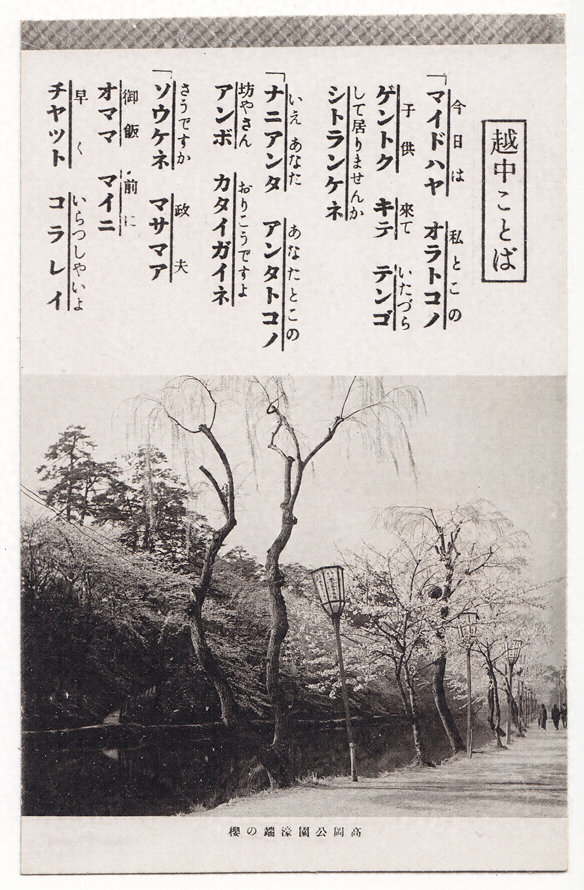 越中ことば
今日は 私とこの
「マイドハヤ オラトコノ
子供 來て いたづら
ゲントク キテ テンゴ
して居りませんか
シトランケネ
いえ あなた あなたとこの
「ナニアンタ アンタトコノ
坊やさん おりこうですよ
アンボ カタイガイネ
さうですか 政夫
「ソウケネ マサマア
御飯 前に
オママ マイニ
早く いらつしやいよ
チヤツト コラレイ
高岡公園濠端の櫻